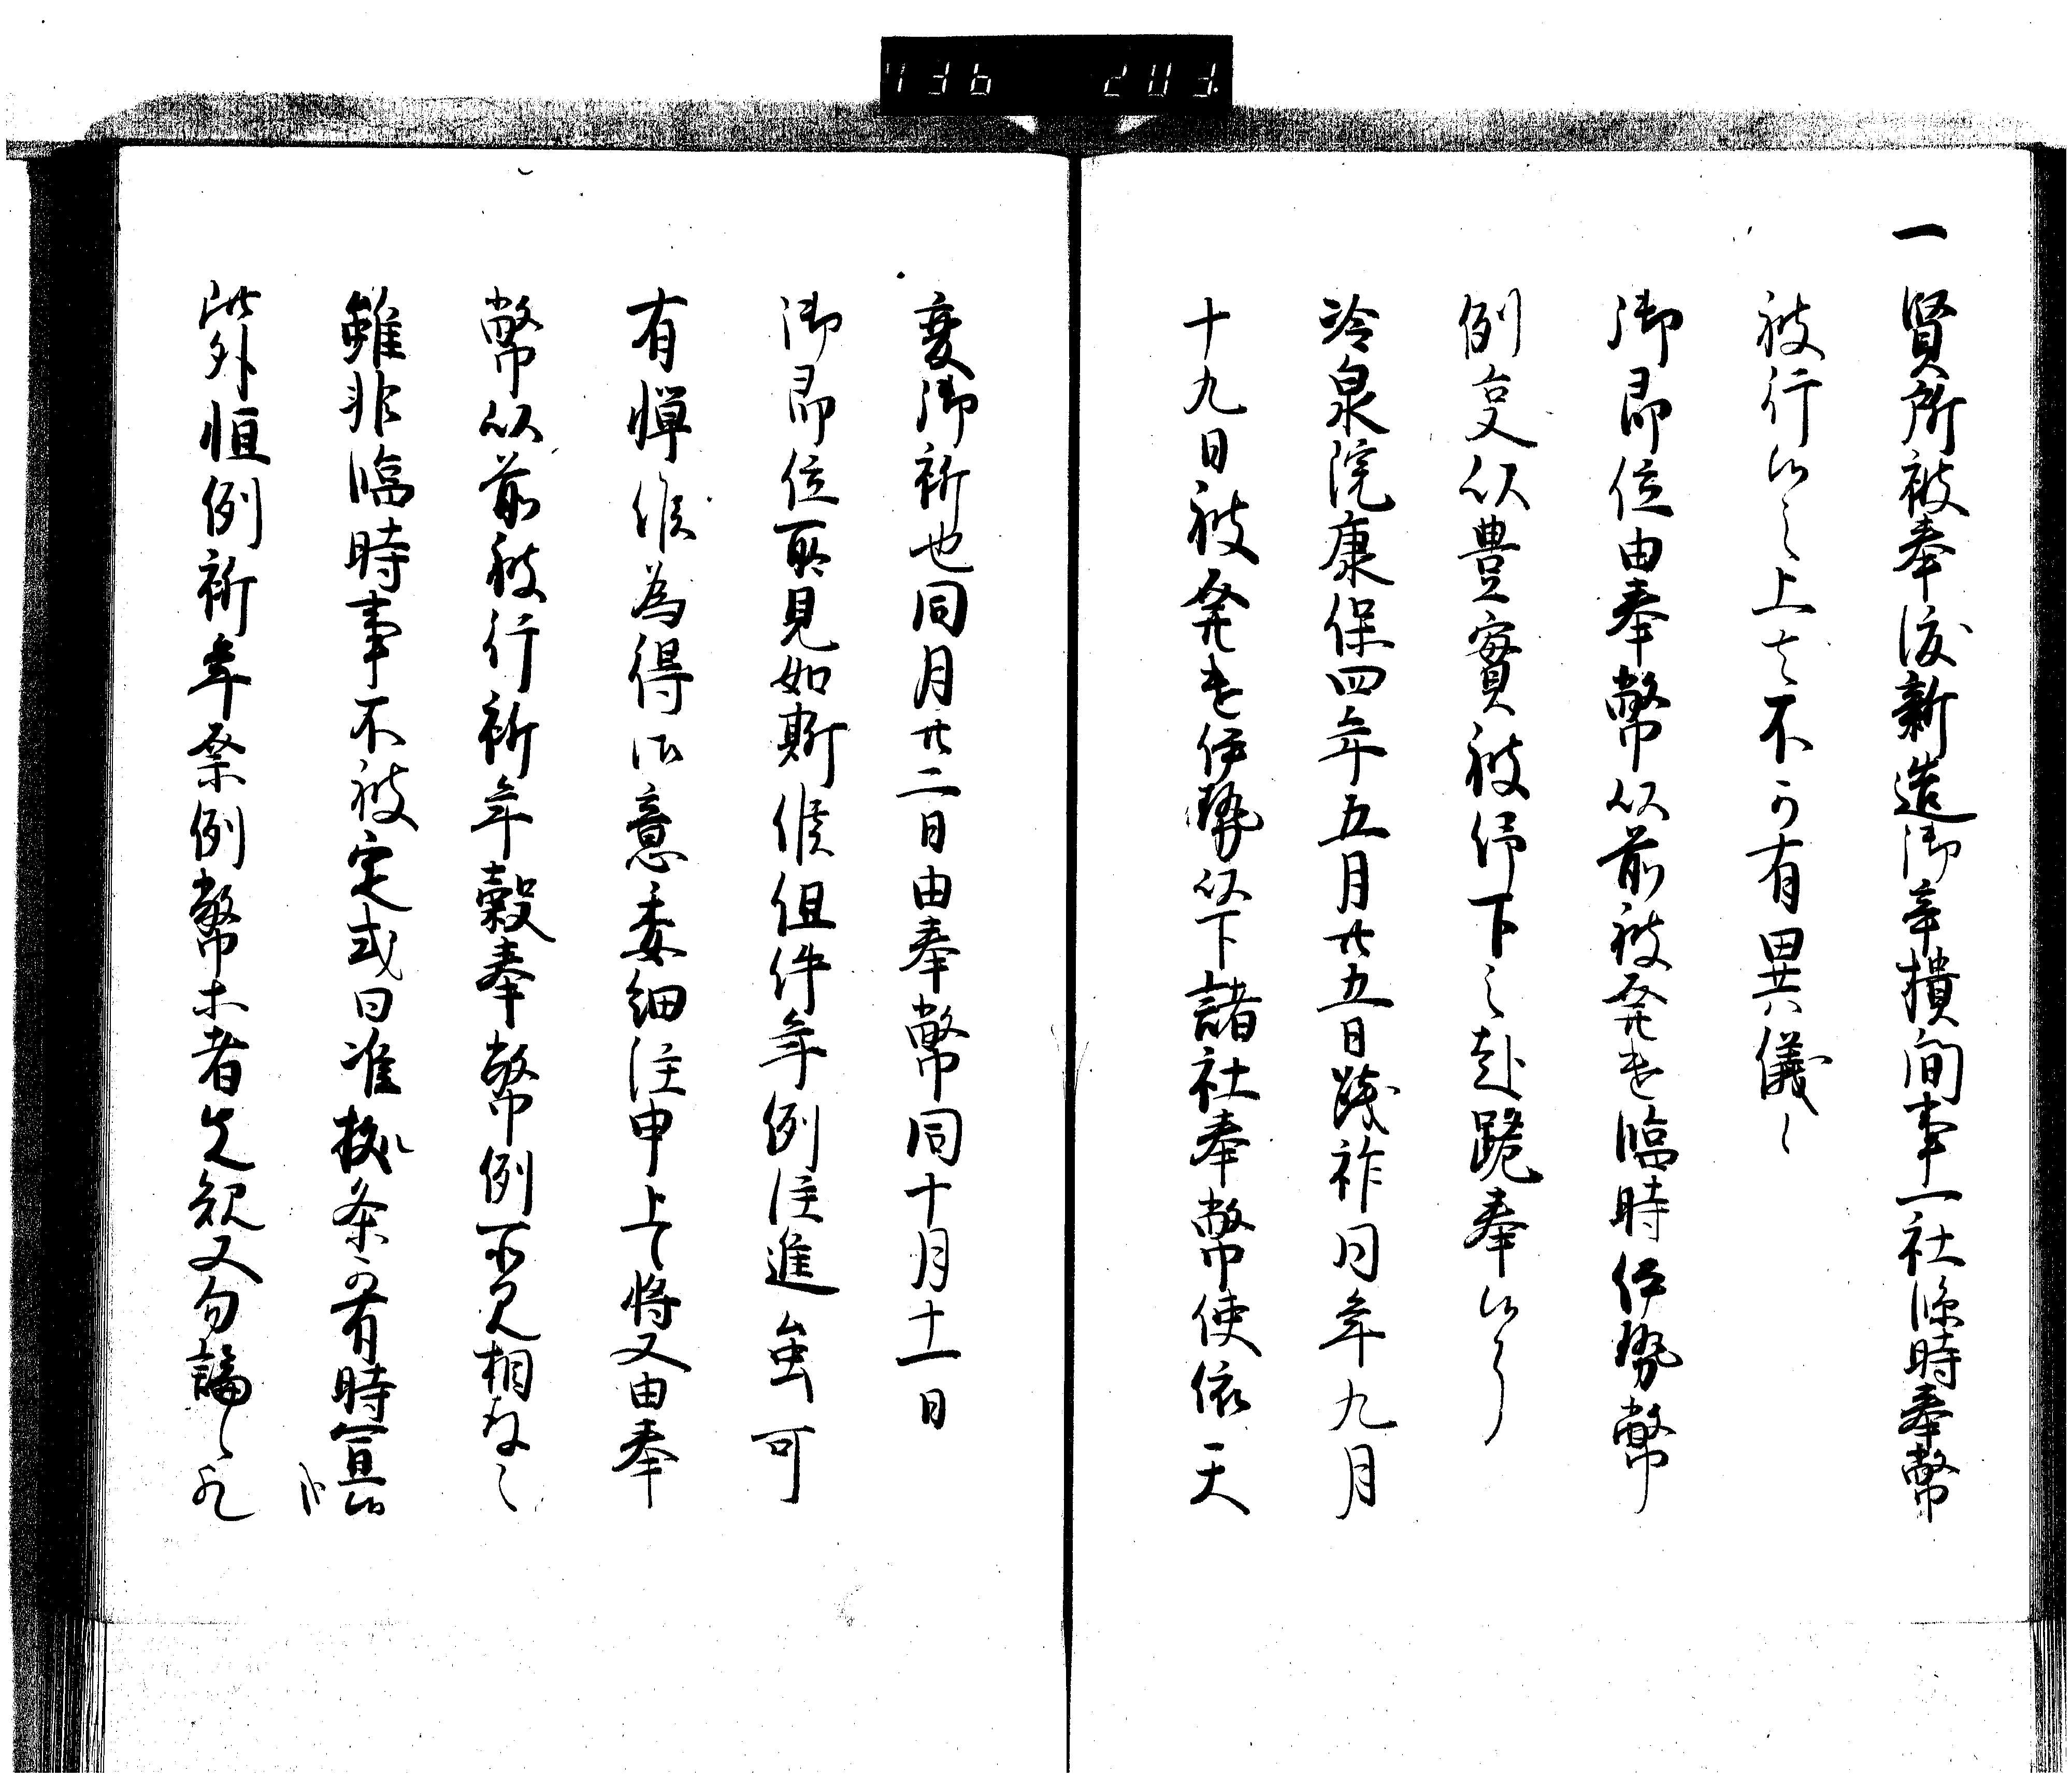 一賢所被奉渡新造御辛櫃間事一社臨時奉幣
被行候之上者不可有異儀々
御即位由奉幣以前被発遣臨時伊勢幣
例事以豊實被仰下之趣跪奉候了
冷泉院康保四年五月廿五日践祚同年九月
十九日被発遣伊勢以下諸社奉幣使依天
変御祈也同月廿二日由奉幣同十月十一日
御即位所見如斯候但件年例注進無可
有憚候為得御意委細注申上候将又由奉
幣以前被行祈年穀奉幣例不見相存之
雖非臨時事不被定或曰准拠条可有時宜候
此外恒例祈年祭例幣等者先規又勿論候